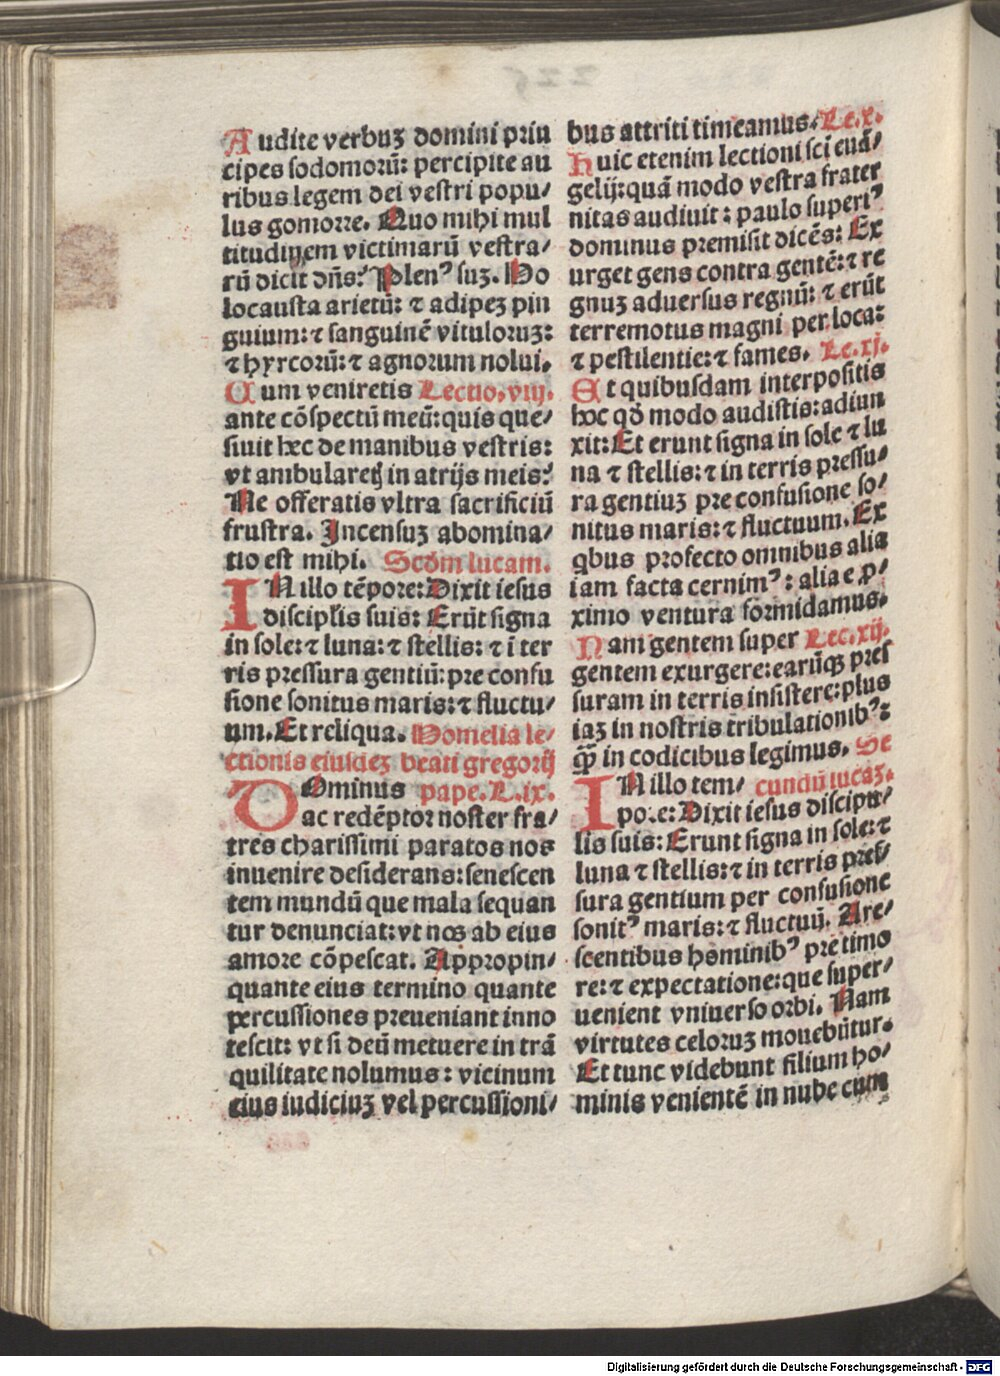 Audite verbuꝫ domini prin
cipes sodomorū: percipite au
ribus legem dei vestri popu/
lus gomorre. Quo mihi mul
titudinem victimarū vestra/
rū dicit dñs? Plenꝰ suꝫ. Ho
locausta arietū: ⁊ adipeꝫ pin
guium: ⁊ sanguinē vituloruꝫ:
⁊ hyrcorū: ⁊ agnorum nolui.
Cum veniretis Lectio.viij.
ante cōspectū meū: quis que/
siuit hec de manibus vestris:
vt ambularetꝭ in atrijs meis?
Ne offeratis vltra sacrificiū
frustra. Incensuꝫ abomina/
tio est mihi. Scđm lucam.
IN illo tēpore: Dixit iesus
discipłis suis: Erūt signa
in sole: ⁊ luna: ⁊ stellis: ⁊ ī ter
ris pressura gentiū: pre confu
sione sonitus maris: ⁊ fluctu/
um. Et reliqua. Homelia le/
ctionis eiusdeꝫ beati gregorij
DOminus pape. L.ix.
ac redēptor noster fra/
tres charissimi paratos nos
inuenire desiderans: senescen
tem mundū que mala sequan
tur denunciat: vt nos ab eius
amore cōpescat. Appropin/
quante eius termino quante
percussiones preueniant inno
tescit: vt si deū metuere in trā
quilitate nolumus: vicinum
eius iudiciuꝫ vel percussioni/
bus attriti timeamus. Le.x.
Huic etenim lectioni sci euā/
gelij: quā modo vestra frater
nitas audiuit: paulo superiꝰ
dominus premisit dicēs: Ex
urget gens contra gentē: ⁊ re
gnuꝫ aduersus regnū: ⁊ erūt
terremotus magni per loca:
⁊ pestilentie: ⁊ fames. Le.xj.
Et quibusdam interpositis
hec qđ modo audistis: adiun
xit: Et erunt signa in sole ⁊ lu
na ⁊ stellis: ⁊ in terris pressu/
ra gentiuꝫ pre confusione so/
nitus maris: ⁊ fluctuum. Ex
qbus profecto omnibus alia
iam facta cernimꝰ: alia e ꝓ/
ximo ventura formidamus.
Nam gentem super Lec.xij.
gentem exurgere: earūqꝫ pres
suram in terris insistere: plus
iaꝫ in nostris tribulationibꝰ:
qꝫ̄ in codicibus legimus. Se
IN illo tem/ cundū lucaꝫ.
pore: Dixit iesus discipu/
lis suis: Erunt signa in sole: ⁊
luna ⁊ stellis: ⁊ in terris pres/
sura gentium per confusione
sonitꝰ maris: ⁊ fluctuū. Are/
scentibus hominibꝰ pre timo
re: ⁊ expectatione: que super/
uenient vniuerso orbi. Nam
virtutes celoruꝫ mouebūtur.
Et tunc videbunt filium ho/
minis venientē in nube cum
Digitalisierung gefördert durch die Deutsche Forschungsgemeinschaft - DFG